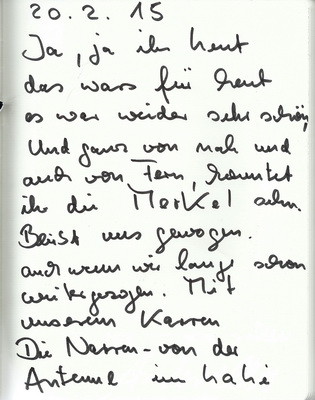 20.2.15
Ja, ja ihr heut
das wars für heut
es war weider sehr schön,
Und ganz von nah und
auch von Fern, konntet
ihr die Merkel sehn.
Bleibt uns gewogen.
auch wenn wir lange schon
weitergezogen. Mit
unserem Karren
Die Narren - von der
Antenne im